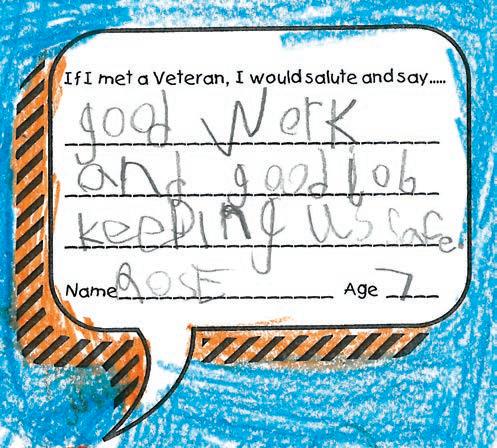 If I met a Veteran, I would salute and say.....
good Work
and good job
keeping us safe.
Name ROSE Age 7